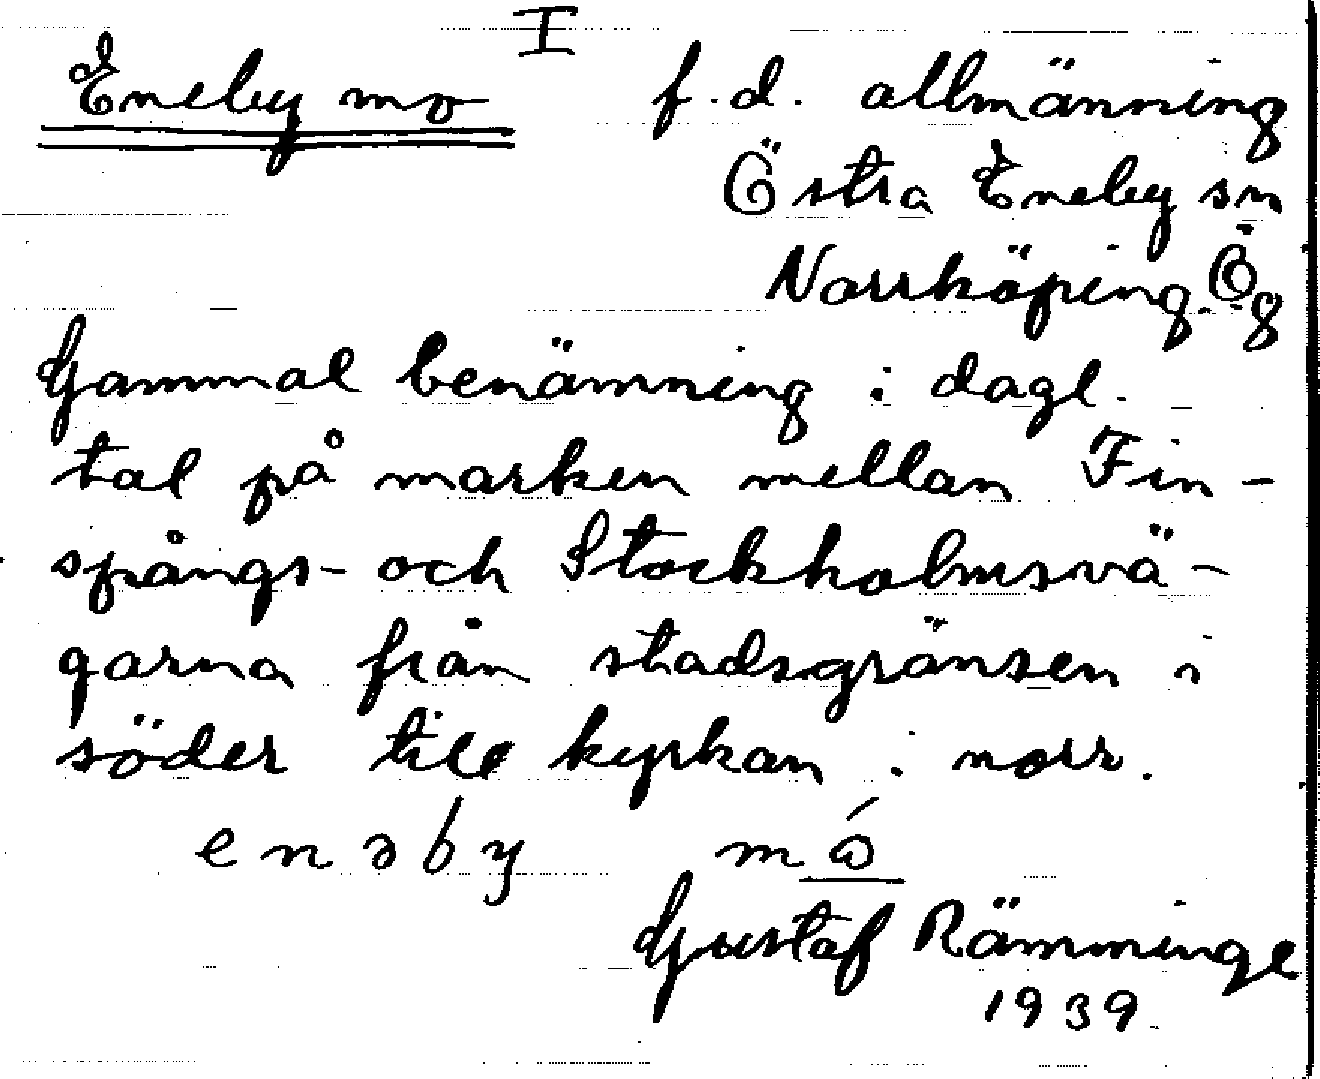 I
Eneby mo f.d. allmänning
Östra Eneby sn
Norrköping. Ög
Gammal benämning i dagl.
tal på marken mellan Fin-
spångs- och Stockholmsvä-
garna från stadsgränsen i
söder till kyrkan i norr.
enəby mó
Gustaf Rämminge
1939